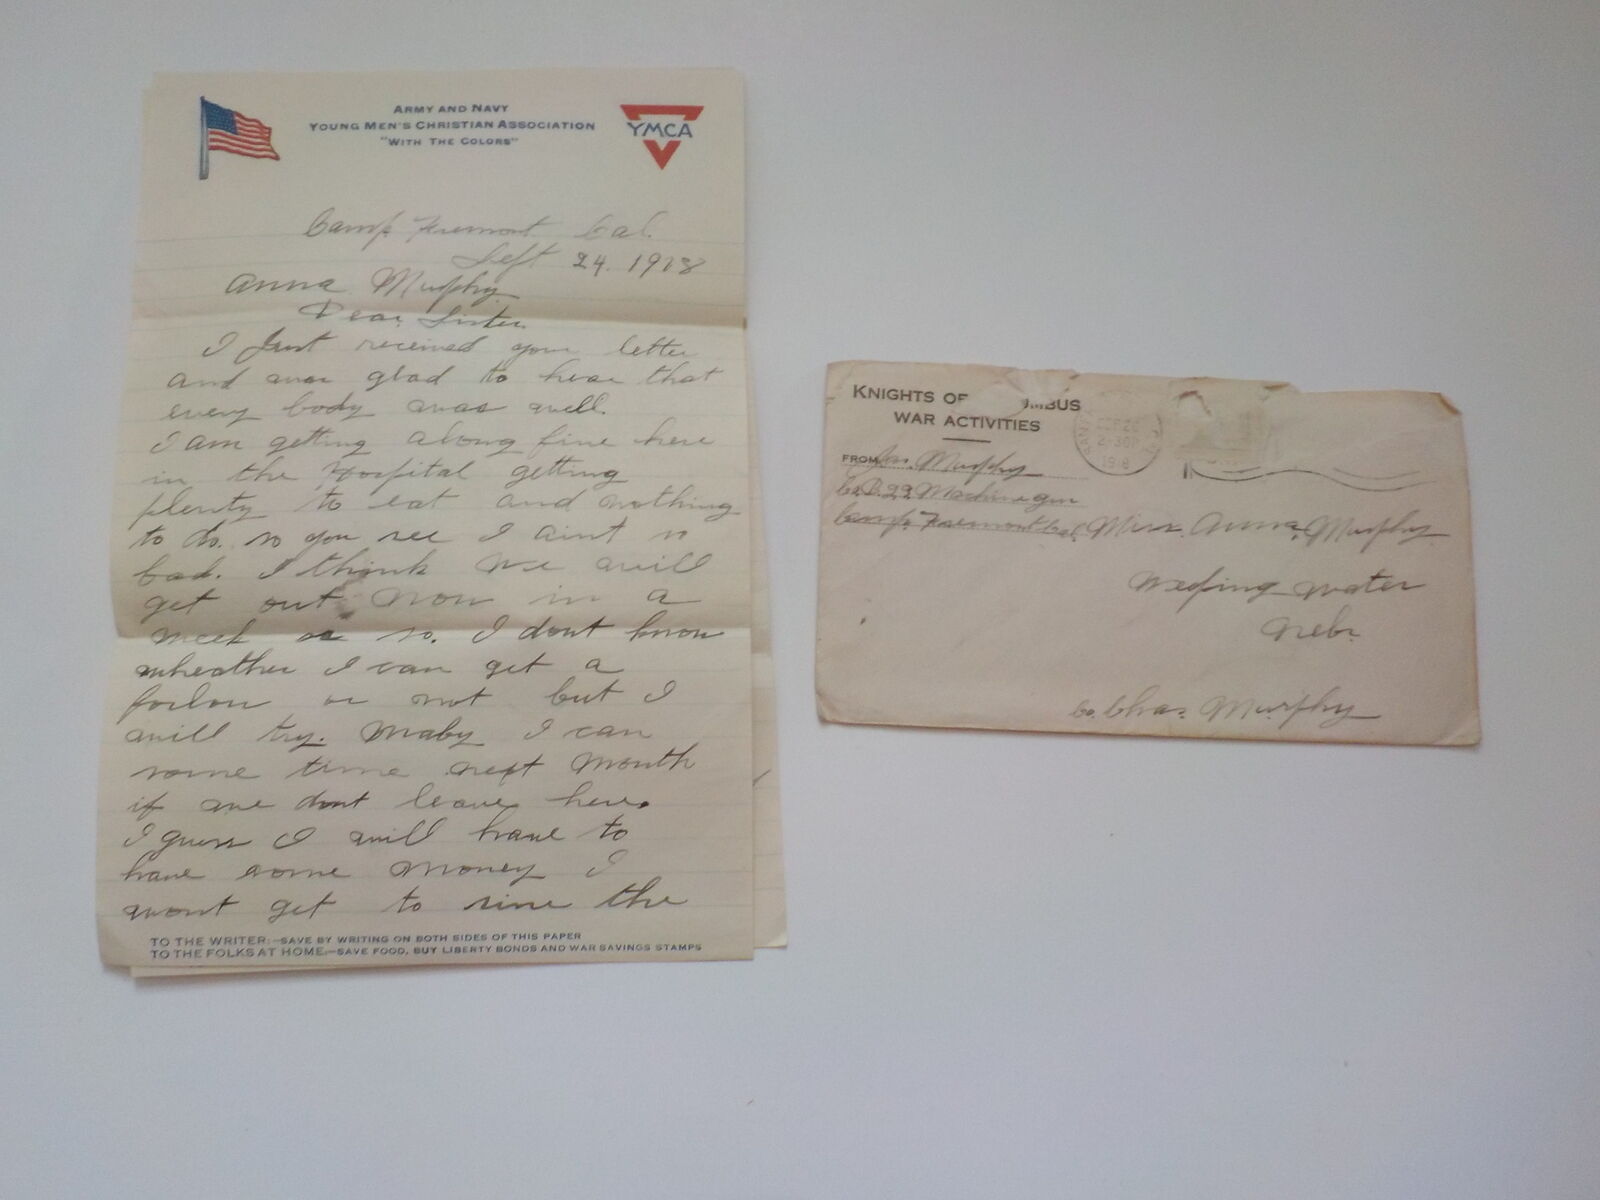 ARMY AND NAVY
YOUNG MEN'S CHRISTIAN ASSOCIATION
"WITH THE COLORS"
YMCA
Camp Fremont Cal.
Sept 24. 1918
Anna Murphy
Dear Sister.
I Just received your letter
and was glad to hear that
every body was well.
I am getting along fine here
in the Hospital getting
plenty to eat and nothing
to do. so you see I aint so
bad. I think we will
get out now in a
week or so. I dont know
wheather I can get a
forlow or not but I
will try. Maby I can
some time next month
if we dont leave here.
I guess I will have to
have some money I
wont get to sine the
TO THE WRITER:—SAVE BY WRITING ON BOTH SIDES OF THIS PAPER
TO THE FOLKS AT HOME:—SAVE FOOD, BUY LIBERTY BONDS AND WAR SAVINGS STAMPS
KNIGHTS OF MBUS
WAR ACTIVITIES
2-30P
1918
FROM Jas. Murphy
Co. B. 22 Machine gun
Camp Fremont Cal.
Miss. Anna. Murphy.
Weeping Water
Nebr
Co. Chas. Murphy